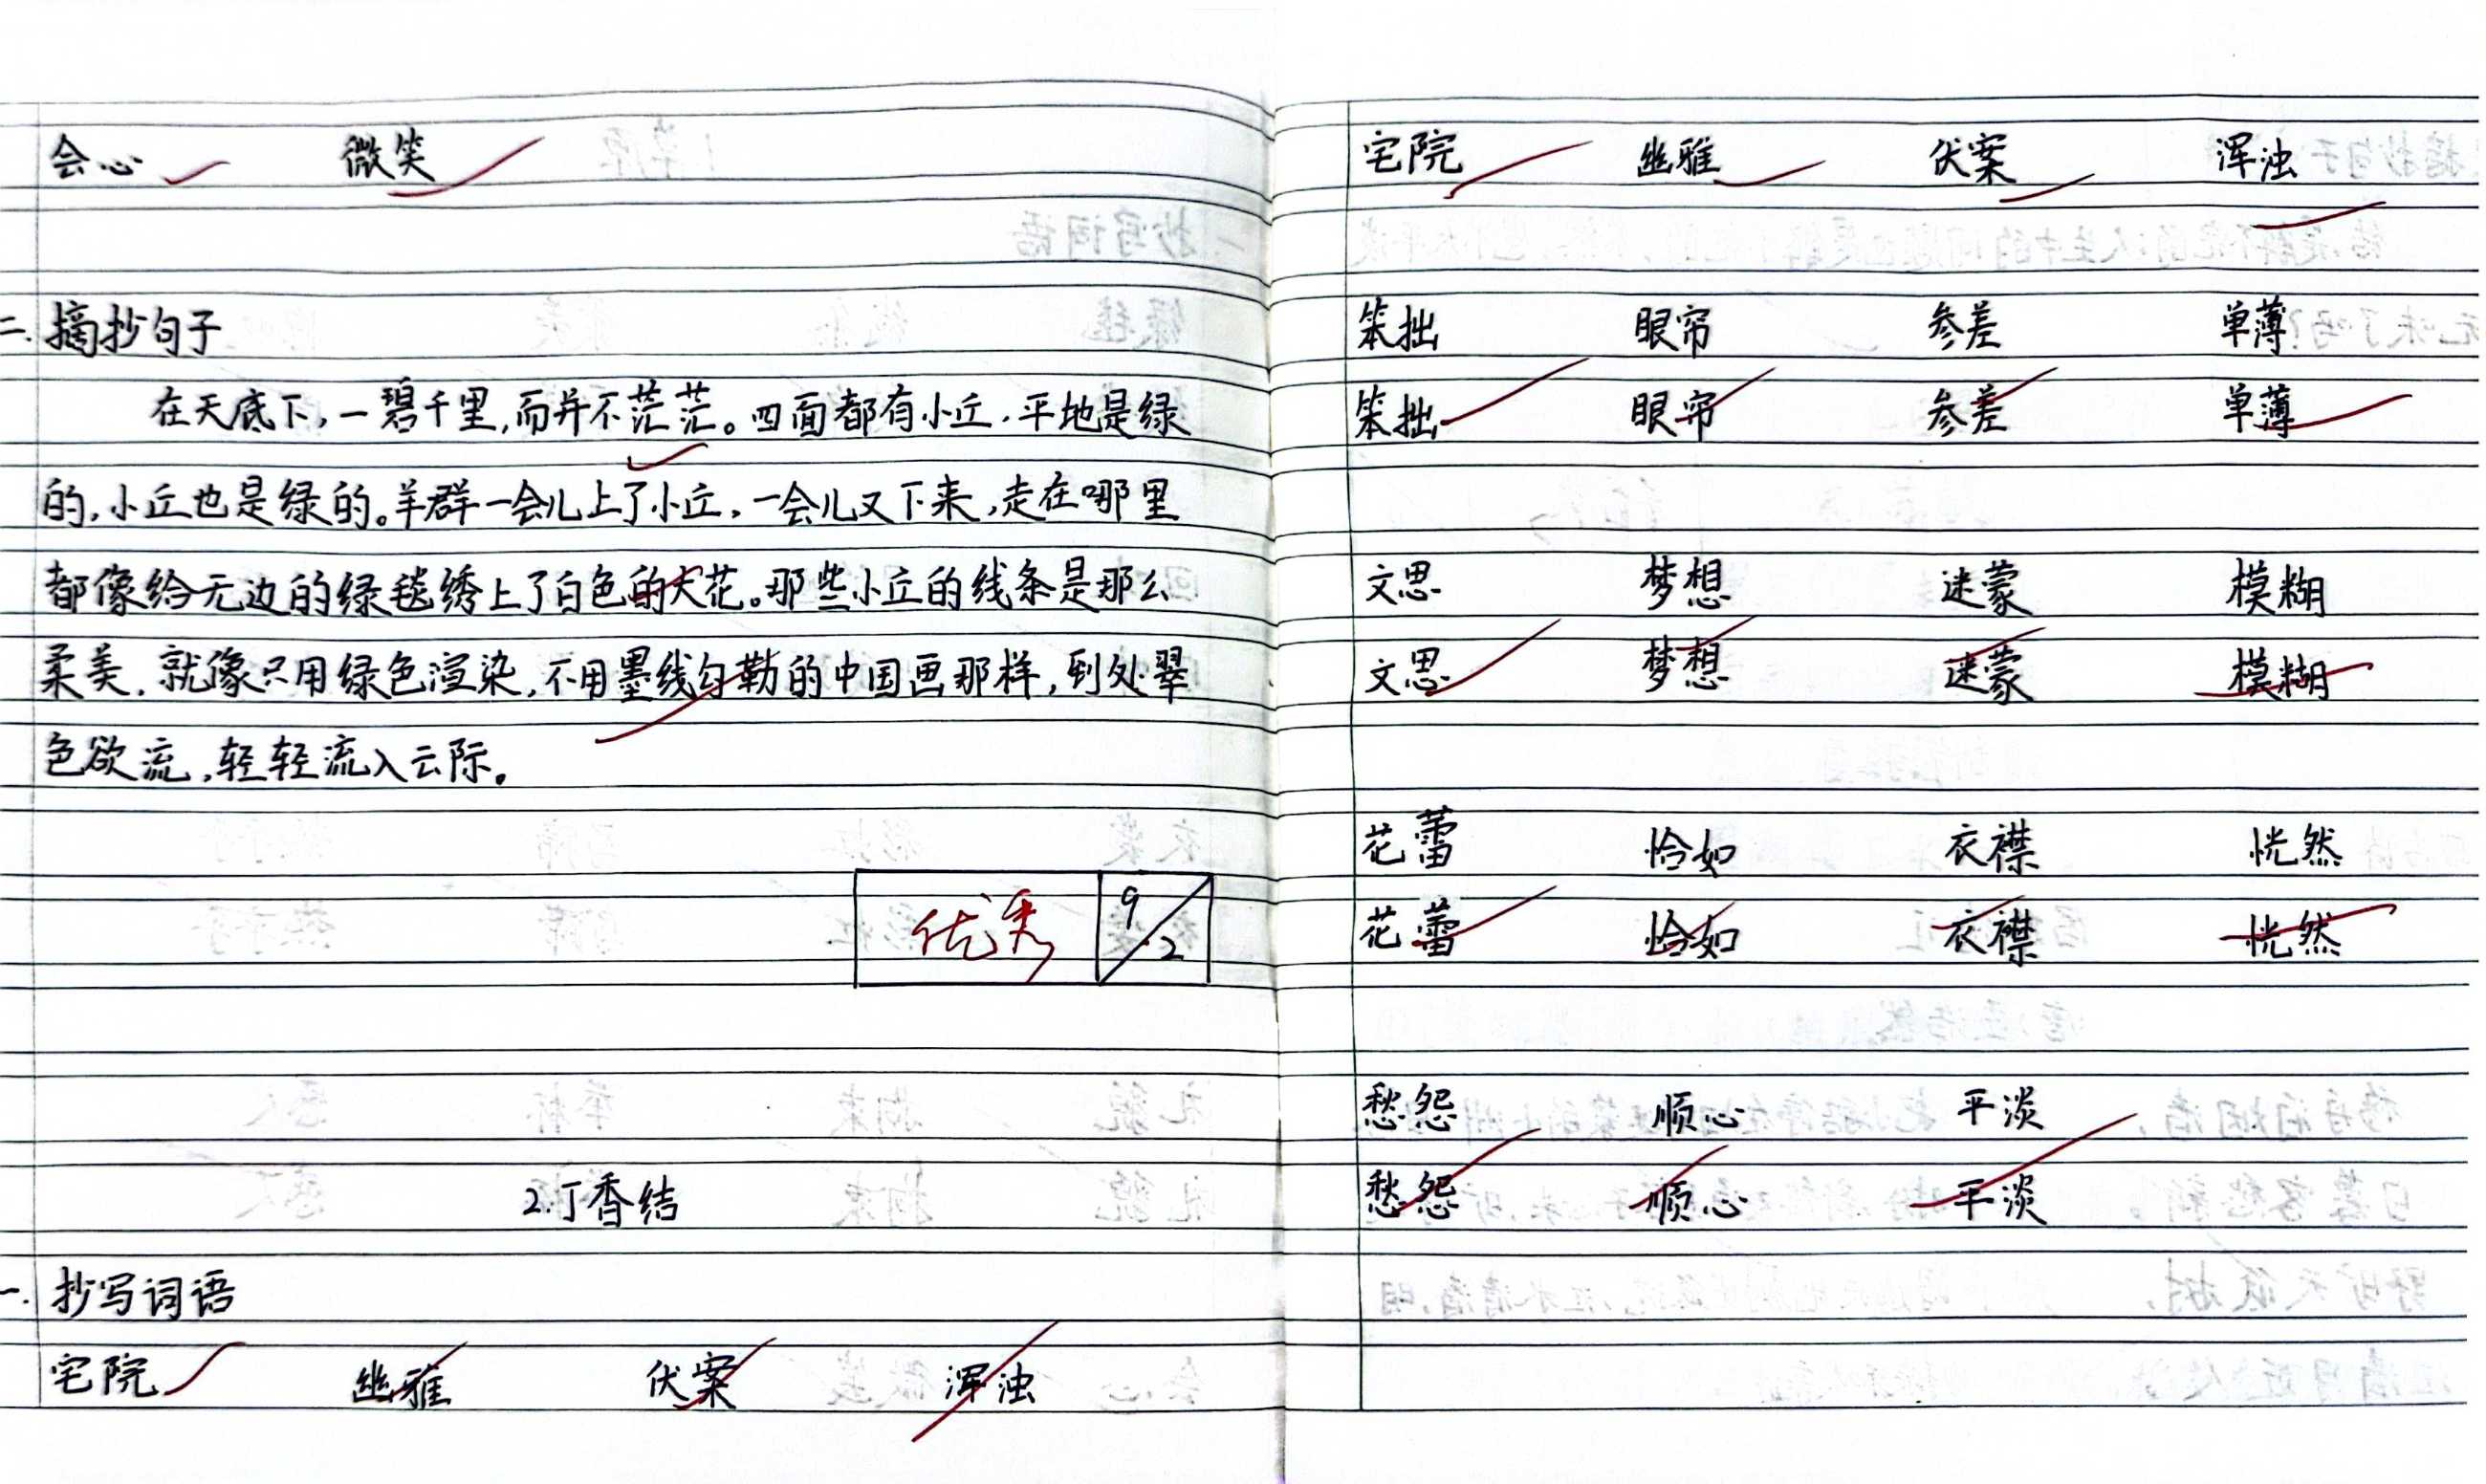 会心 微笑
二. 摘抄句子
在天底下,一碧千里,而并不茫茫。四面都有小丘,平地是绿
的,小丘也是绿的。羊群一会儿上了小丘,一会儿又下来,走在哪里
都像给无边的绿毯绣上了白色的大花。那些小丘的线条是那么
柔美,就像只用绿色渲染,不用墨线勾勒的中国画那样,到处翠
色欲流,轻轻流入云际。
优秀 9/2
2.丁香结
一. 抄写词语
宅院 幽雅 伏案 浑浊
宅院 幽雅 伏案 浑浊
笨拙 眼帘 参差 单薄
笨拙 眼帘 参差 单薄
文思 梦想 迷蒙 模糊
文思 梦想 迷蒙 模糊
花蕾 恰如 衣襟 恍然
花蕾 恰如 衣襟 恍然
愁怨 顺心 平淡
愁怨 顺心 平淡